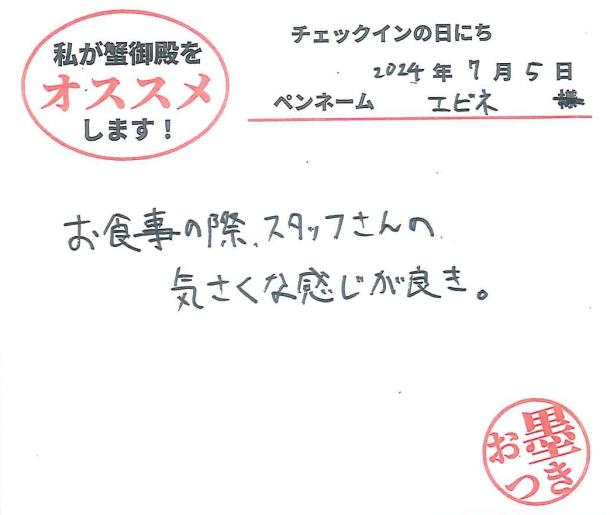 私が蟹御殿を
オススメ
します！
チェックインの日にち
2024年7月5日
ペンネーム エビネ 様
お食事の際、スタッフさんの
気さくな感じが良き。
お墨
つき